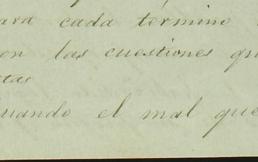 ara cada termino
on las cuestiones qu
tas
uando el mal que